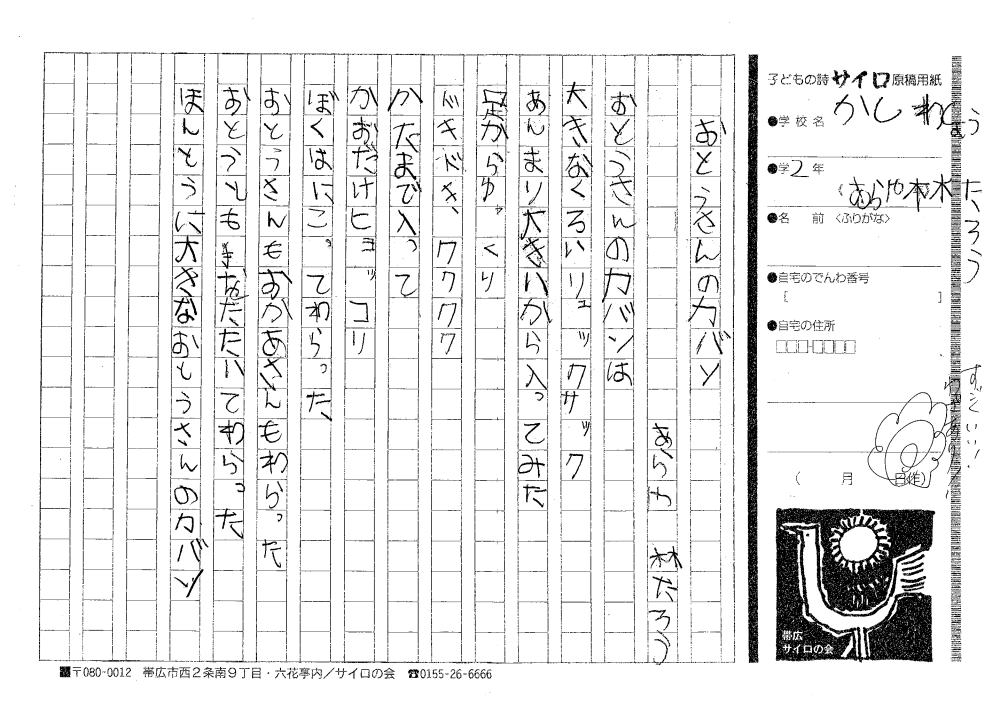 おとうさんのカバン
あらや 林たろう
おとうさんのカバンは
大きなくろいリュックサック
あんまり大きいから入ってみた
足からゆっくり
ドキドキ、ワクワクワク
かたまで入って
かおだけヒョッコリ
ぼくはにこってわらった、
おとうさんもおかあさんもわらった
おとうとも手をたたいてわらった
ほんとうに大きなおとうさんのカバン
子どもの詩 サイロ 原稿用紙
●学校名
かしわしょう
●学2年
あらや 林たろう
●名 前〈ふりがな〉
●自宅のでんわ番号
[ ]
●自宅の住所
( 月 日作)
帯広
サイロの会
〒080-0012 帯広市西2条南9丁目・六花亭内/サイロの会 ☎0155-26-6666